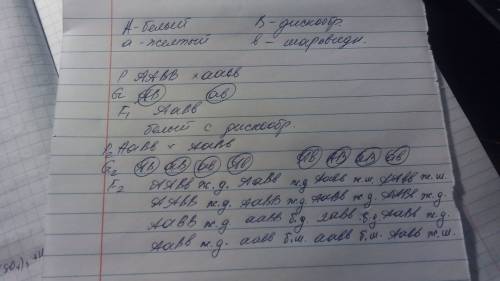 А-белый В-дискообр.
а-желтый в-шаровидн.
Р ААВВ × аавв
G АВ ав
F₁ АаВв
белый с дискообр.
Р₂ АаВв × АаВв
G₂
F₂ ААВВ ж.д. АаВв ж.д Аавв ж.ш. ААВв ж.ш.
ААВв ж.д. АаВВ ж.д АаВв ж.д. ААВв ж.д.
АаВВ ж.д ааВв б.д ааВв б.д АаВв ж.д.
АаВв ж.д. аавв б.ш. аавв б.ш. АаВв ж.ш.